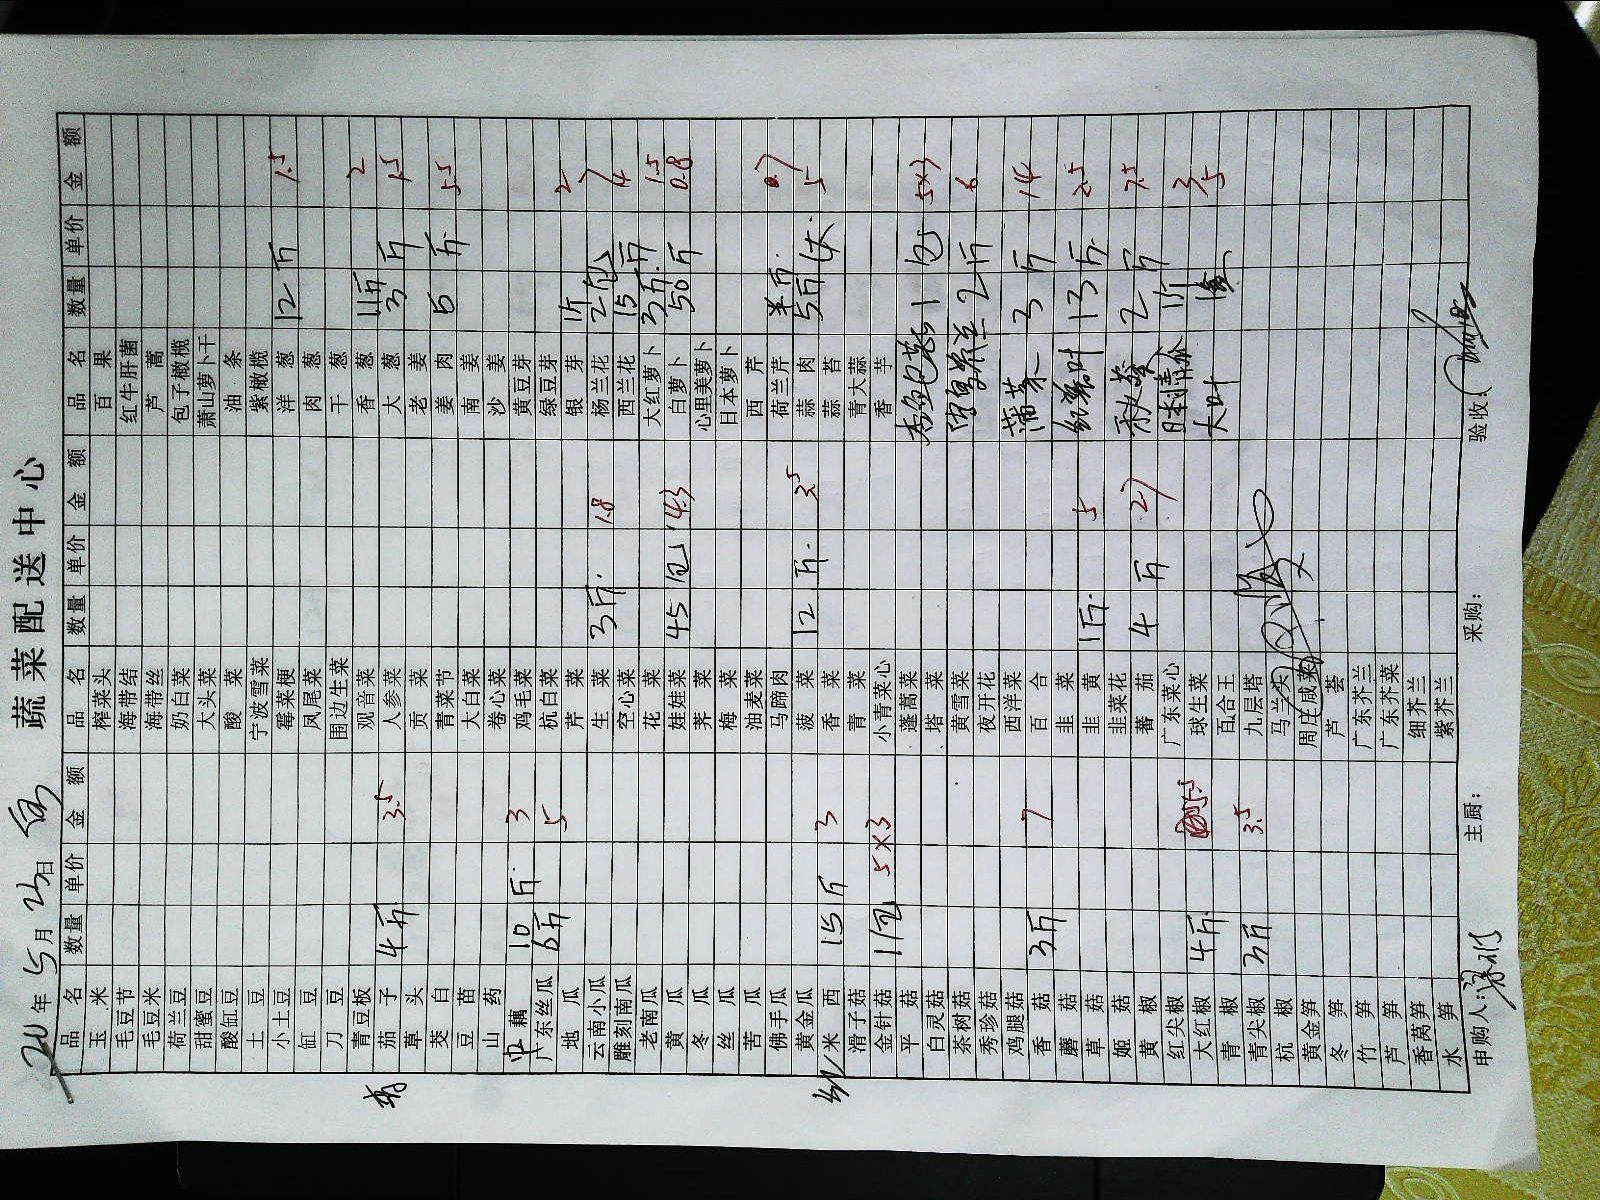 蔬菜配送中心
年 5 月 23 日
品名 数量 单价 金额 品名 数量 单价 金额 品名 数量 单价 金额
玉米 榨菜头 百果
毛豆节 海带结 红牛肝菌
毛豆米 海带丝 芦蒿
荷兰豆 奶白菜 包子橄榄
甜蜜豆 大头菜 萧山萝卜干
酸缸豆 酸菜 油条
土豆 宁波雪菜 紫橄榄
小土豆 霉菜梗 洋葱 12斤 1.5
缸豆 凤尾菜 肉葱
刀豆 围边生菜 干葱
青豆板 观音菜 香葱 1斤 2
茄子 4斤 3.5 人参菜 大葱 3斤 1.5
草头 贡菜 老姜
茭白 青菜节 姜肉 5斤 5.5
豆苗 大白菜 南姜
山药 卷心菜 沙姜
中 藕 10斤 3 鸡毛菜 黄豆芽
广东丝瓜 6斤 5 杭白菜 绿豆芽
地瓜 芹菜 银芽 1斤 2
云南小瓜 生菜 3斤 1.8 杨兰花 2包 7
雕刻南瓜 空心菜 西兰花 15斤 4
老南瓜 花菜 大红萝卜 3斤 1.5
黄瓜 娃娃菜 45包 4.3 白萝卜 50斤 0.8
冬瓜 荠菜 心里美萝卜
丝瓜 梅菜 日本萝卜
苦瓜 油麦菜 西芹
佛手瓜 马蹄肉 荷兰芹 半斤 7
黄金瓜 菠菜 12斤 3.5 蒜肉 5斤 5
米西 15斤 3 香菜 蒜苔
滑子菇 青菜 青大蒜
金针菇 1包 5×3 小青菜心 香芋
平菇 蓬蒿菜 杏鲍菇 1包 5×3
白灵菇 塔菜
茶树菇 黄雪菜 2斤 6
秀珍菇 夜开花
鸡腿菇 西洋菜 蒲菜 3斤 14
香菇 3斤 7 百合
蘑菇 韭菜 13斤 2.5
草菇 韭黄 1斤 5
姬菇 韭菜花 秋葵 2斤 7.5
黄椒 蕃茄 4斤 2.7
红尖椒 广东菜心 日本青瓜 1斤 3
大红椒 4斤 5.5 球生菜 大叶 5
青椒 百合王
青尖椒 3斤 3.5 九层塔
杭椒 马兰头
黄金笋 周庄咸菜
冬笋 芦荟
竹笋 广东芥兰
芦笋 广东芥菜
香莴笋 细芥兰
水笋 紫芥兰
申购人: 主厨: 采购: 验收: